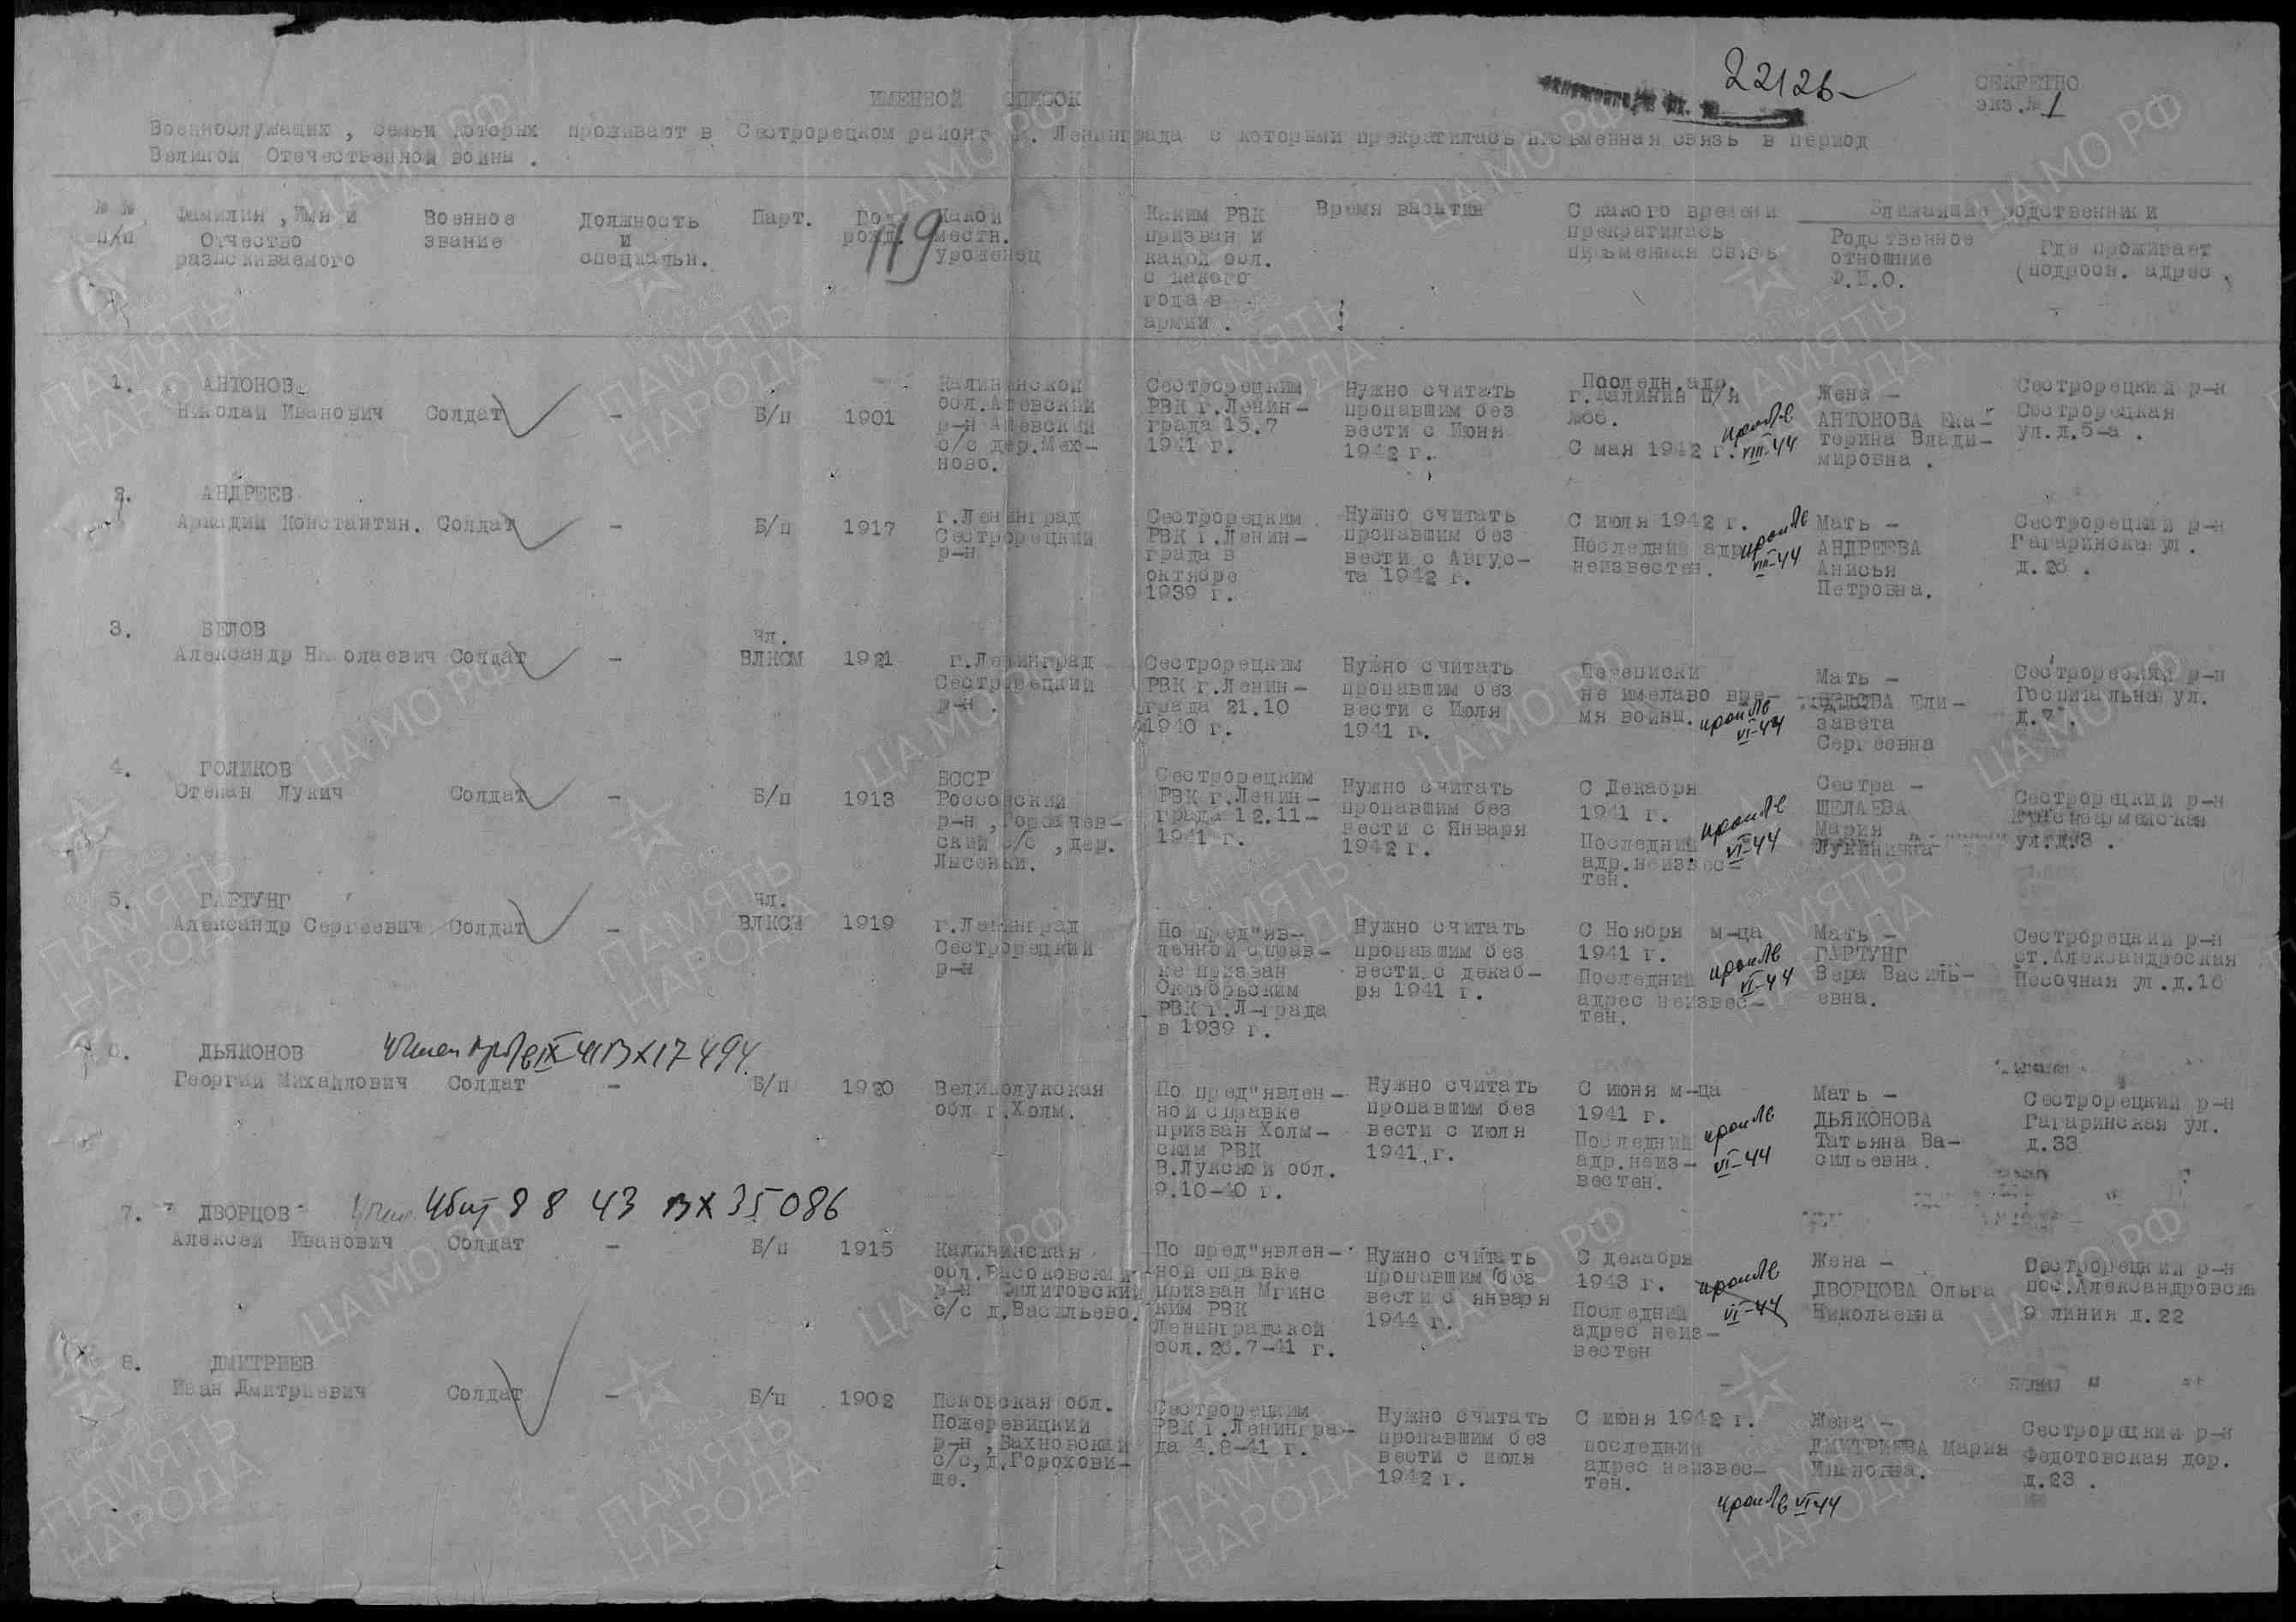 22126
СЕКРЕТНО
экз.№ 1
ИМЕННОЙ СПИСОК
Военнослужащих , семьи которых проживают в Сестрорецком районе г. Ленинграда с которыми прекратилась письменная связь в период
Великой Отечественной войны .
№ №
п/п
Фамилия , Имя и
Отчество
разыскиваемого
Военное
звание
Должность
и
специальн.
Парт.
Год
рожд.
119
Какой
местн.
уроженец
Каким РВК
призван и
какой обл.
с какого
года в
армии .
Время выбытия
С какого времени
прекратилась
письменная связь
Ближайшие родственники
Родственное
отношние
Ф.И.О.
Где проживает
(подробн. адрес ,
1.
АНТОНОВ
Николай Иванович
Солдат
-
Б/п
1901
Калининской
обл.Ашевский
р-н Ашевский
с/с дер.Мех-
ново.
Сестрорецким
РВК г.Ленин-
града 15.7
1941 г.
Нужно считать
пропавшим без
вести с Июня
1942 г.
Последн.адр.
г.Калинин п/я
С мая 1942 г.
VIII-44
Жена -
АНТОНОВА Ека-
терина Влади-
мировна .
Сестрорецкий р-н
Сестрорецкая
ул.д.5-а .
2.
АНДРЕЕВ
Аркадий Константин.
Солдат
-
Б/п
1917
г.Ленинград
Сестрорецкий
р-н
Сестрорецким
РВК г.Ленин-
града в
октябре
1939 г.
Нужно считать
пропавшим без
вести с Авгус-
та 1942 г.
С июля 1942 г.
Последний адр.
неизвестен.
VIII-44
Мать -
АНДРЕЕВА
Анисья
Петровна.
Сестрорецкий р-н
Гагаринска ул .
д.26 .
3.
БЕЛОВ
Александр Николаевич
Солдат
-
Чл.
ВЛКСМ
1921
г.Ленинград
Сестрорецкий
р-н .
Сестрорецким
РВК г.Ленин-
града 21.10
1940 г.
Нужно считать
пропавшим без
вести с Июля
1941 г.
Переписки
не имелаво вре-
мя войны.
VI-44
Мать -
БЕЛОВА Ели-
завета
Сергеевна
Сестрорецкий р-н
Госпитальна ул.
д.7 .
4.
ГОЛИКОВ
Степан Лукич
Солдат
-
Б/п
1913
БССР
Россонский
р-н ,Горбачев-
ский с/с ,дер.
Лысенки.
Сестрорецким
РВК г.Ленин-
града 12.11-
1941 г.
Нужно считать
пропавшим без
вести с Января
1942 г.
С Декабря
1941 г.
Последний
адр.неизвес-
тен.
VI-44
Сестра -
ШЕЛАЕВА
Мария
Лукинична
Сестрорецкий р-н
Красноармейская
ул.д.3 .
5.
ГАРТУНГ
Александр Сергеевич
Солдат
-
Чл.
ВЛКСМ
1919
г.Ленинград
Сестрорецкий
р-н
По пред"яв-
ленной справ-
ке призван
Октябрьским
РВК г.Л-града
в 1939 г.
Нужно считать
пропавшим без
вести с декаб-
ря 1941 г.
С Ноября м-ца
1941 г.
Последний
адрес неизвес-
тен.
VI-44
Мать -
ГАРТУНГ
Вера Василь-
евна.
Сестрорецкий р-н
ст.Александровская
Песочная ул.д.16
6.
ДЬЯКОНОВ
IX-41 вх 17494
Георгий Михайлович
Солдат
-
Б/п
1920
Великолукская
обл г.Холм.
По пред"явлен-
ной справке
призван Холм-
ским РВК
В.Лукской обл.
9.10-40 г.
Нужно считать
пропавшим без
вести с июля
1941 г.
С июня м-ца
1941 г.
Последний
адр.неиз-
вестен.
VI-44
Мать -
ДЬЯКОНОВА
Татьяна Ва-
сильевна.
Сестрорецкий р-н
Гагаринская ул.
д.33
7.
ДВОРЦОВ
убит 8 8 43 вх 35086
Алексей Иванович
Солдат
-
Б/п
1915
Калининская
обл.Высоковский
р-н
с/с д.Васильево.
По пред"явлен-
ной справке
призван Мгинс
ким РВК
Ленинградской
обл.26.7-41 г.
Нужно считать
пропавшим без
вести с января
1944 г.
С декабря
1943 г.
Последний
адрес неиз-
вестен
VI-44
Жена -
ДВОРЦОВА Ольга
Николаевна
Сестрорецкий р-н
пос.Александровска
9 линия д.22
8.
ДМИТРИЕВ
Иван Дмитриевич
Солдат
-
Б/п
1902
Псковская обл.
Пожеревицкий
р-н ,Вахновский
с/с,д.Горохови-
ще.
Сестрорецким
РВК г.Ленингра-
да 4.8-41 г.
Нужно считать
пропавшим без
вести с июля
1942 г.
С июня 1942 г.
последний
адрес неизвес-
тен.
VI-44
Жена -
ДМИТРИЕВА Мария
Ивановна.
Сестрорецкий р-н
Федотовская дор.
д.23 .